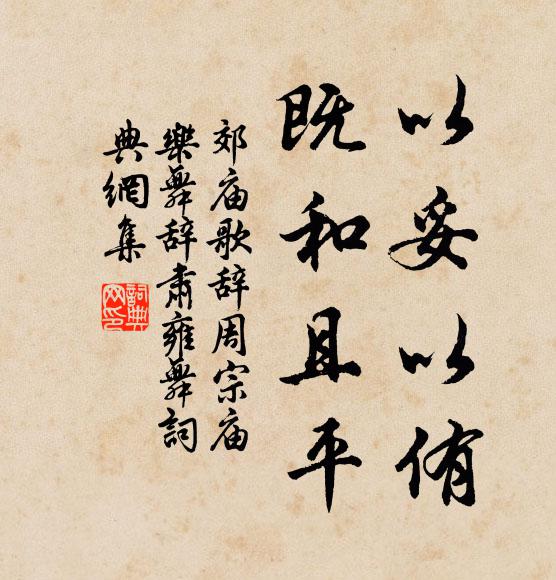 以妥以侑
既和且平
郊庙歌辞周宗庙
樂舞辞肃雍舞詞
典網集
詞典网印